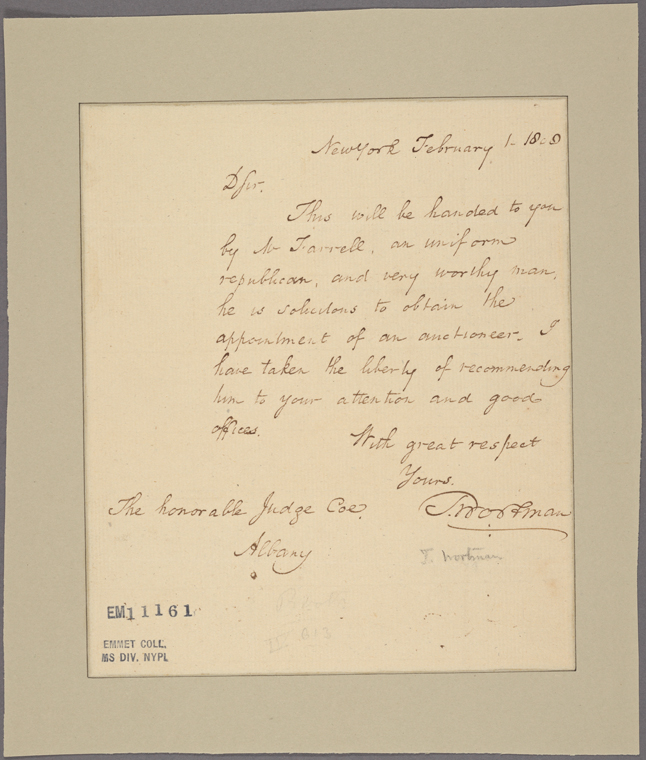 New York February 1- 1808
D Sir.
This will be handed to you
by Mr Farrell, an uniform
republican, and very worthy man,
he is solicitous to obtain the
appointment of an auctioneer. I
have taken the liberty of recommending
him to your attention and good
offices.
With great respect
Yours.
The honorable Judge Coe.
T. Wortman
Albany
T. Wortman
EM11161
EMMET COLL.
MS DIV. NYPL